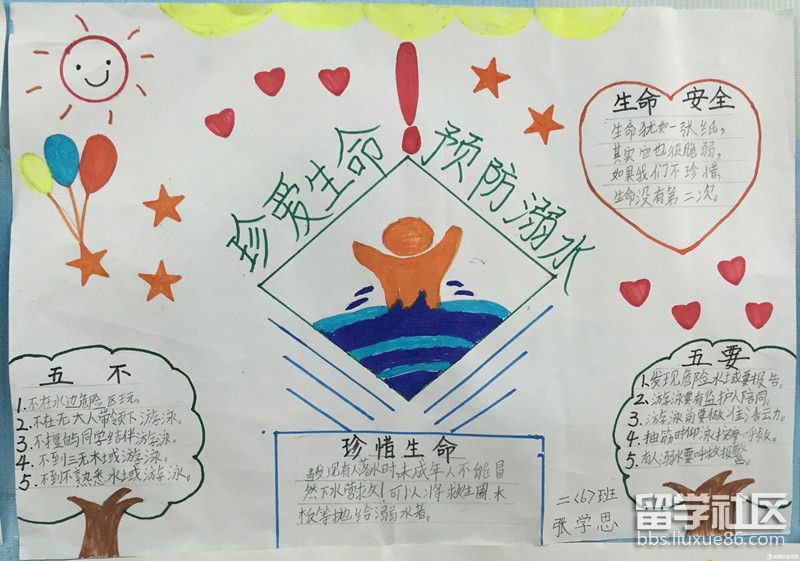 珍爱生命 预防溺水
生命 安全
生命犹如一张纸，
其实它也很脆弱，
如果我们不珍惜，
生命没有第二次。
五 不
1.不在水边危险区玩。
2.不在无大人带领下游泳。
3.不擅自与同学结伴游泳。
4.不到三无水域游泳。
5.不到不熟悉水域游泳。
珍惜生命
发现有人溺水时，未成年人不能冒
然下水营救，可以将救生圈、木
板等抛给溺水者。
五 要
1.发现危险水域要报告。
2.游泳要有监护人陪同。
3.游泳前要做准备运动。
4.抽筋时仰泳 呼救。
5.有人溺水要呼救报警。
二〈6〉班
张学思
留学社区
bbs.liuxue86.com